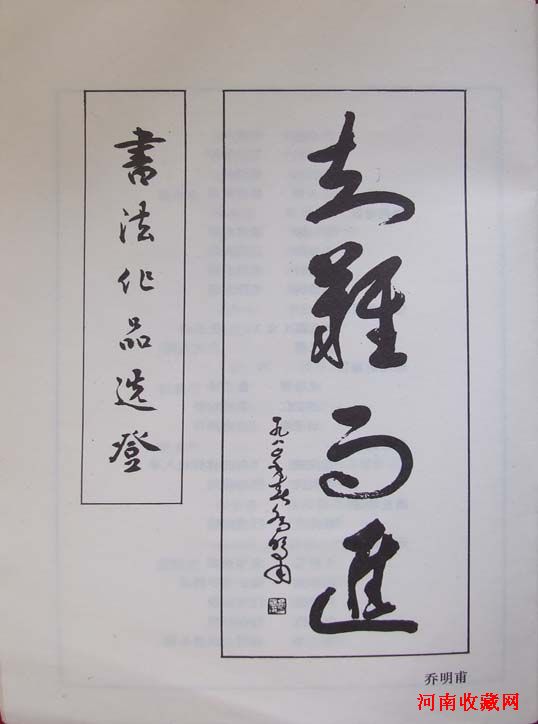 知難而進
年春喬明甫
書法作品选登
乔明甫
河南收藏网